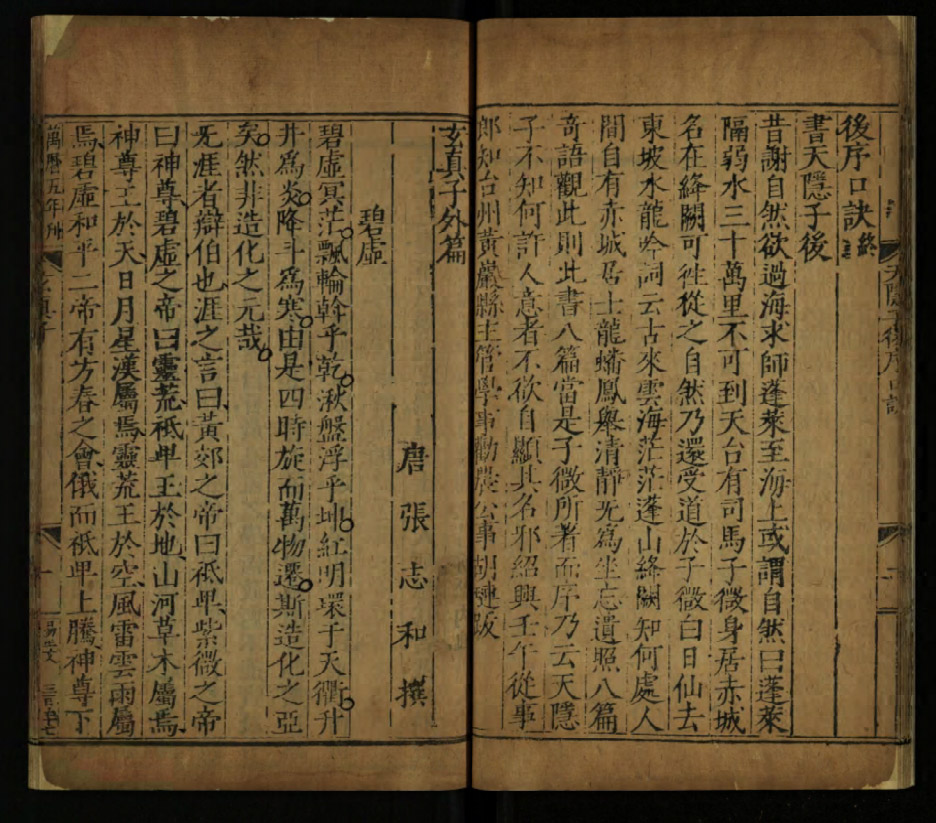 後序口訣終
書天隱子後
昔謝自然欲過海求師蓬萊至海上或謂自然曰蓬萊
隔弱水三十萬里不可到天台有司馬子微身居赤城
名在絳闕可徃從之自然乃還受道於子微白日仙去
東坡水龍吟詞云古來雲海茫茫蓬山絳闕知何處人
間自有赤城居士龍蟠鳳舉清靜无爲坐忘遺照八篇
奇語觀此則此書八篇當是子微所著而序乃云天隱
子不知何許人意者不欲自顯其名邪紹興壬午從事
郎知台州黃巖縣主管學事勸農公事胡璉跋
玄真子外篇
唐張志和撰
碧虛
碧虛冥茫飄輪斡乎乾湫盤浮乎坤紅明環于天衢升
井爲炎降斗爲寒由是四時旋而萬物遷斯造化之亞
矣然非造化之元哉
无涯者辯伯也涯之言曰黃郊之帝曰祇卑紫微之帝
曰神尊碧虛之帝曰靈荒祇卑王於地山河草木屬焉
神尊王於天日月星漢屬焉靈荒王於空風雷雲雨屬
焉碧虛和平二帝有方春之會俄而祇卑上騰神尊下
萬曆五年刊 玄真子 一